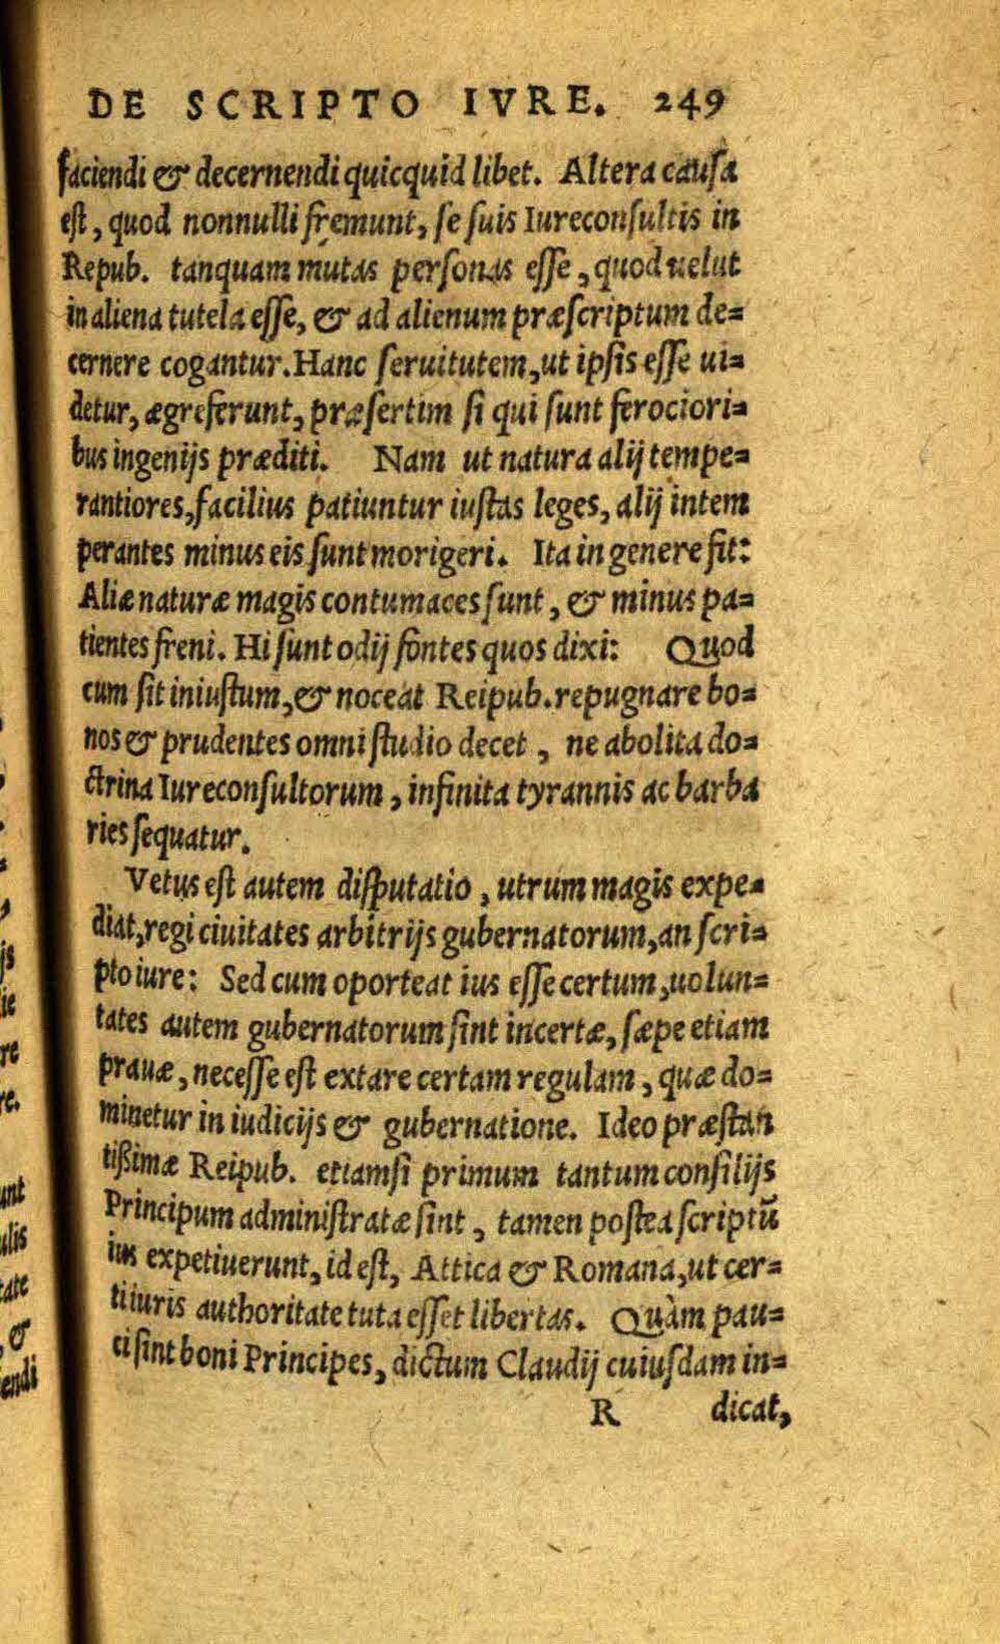 DE SCRIPTO IVRE. 249
faciendi & decernendi quicquid libet. Altera causa
est, quod nonnulli fremunt, se suis Iureconsultis in
Repub. tanquam mutas personas esse, quod uelut
in aliena tutela esse, & ad alienum præscriptum de=
cernere cogantur. Hanc seruitutem, ut ipsis esse ui=
detur, ægre ferunt, præsertim si qui sunt ferociori=
bus ingenijs præditi. Nam ut natura alij tempe=
rantiores, facilius patiuntur iustas leges, alij intem
perantes minus eis sunt morigeri. Ita in genere fit:
Aliæ naturæ magis contumaces sunt, & minus pa=
tientes freni. Hi sunt odij fontes quos dixi: Quod
cum sit iniustum, & noceat Reipub. repugnare bo=
nos & prudentes omni studio decet, ne abolita do=
ctrina Iureconsultorum, infinita tyrannis ac barba
ries sequatur.
Vetus est autem disputatio, utrum magis expe=
diat, regi ciuitates arbitrijs gubernatorum, an scri=
pto iure: Sed cum oporteat ius esse certum, uolun=
tates autem gubernatorum sint incertæ, sæpe etiam
prauæ, necesse est extare certam regulam, quæ do=
minetur in iudicijs & gubernatione. Ideo præstan
tißimæ Reipub. etiamsi primum tantum consilijs
Principum administratæ sint, tamen postea scriptũ
ius expetiuerunt, id est, Attica & Romana, ut cer=
ti iuris authoritate tuta esset libertas. Quàm pau=
ci sint boni Principes, dictum Claudij cuiusdam in=
R dicat,